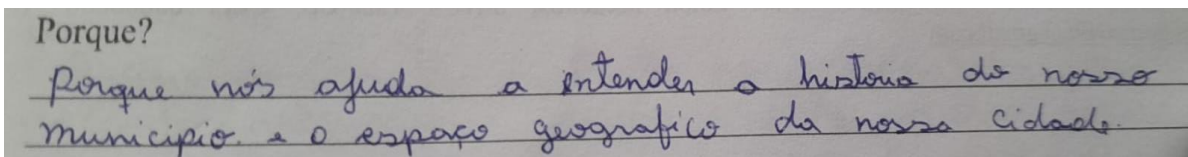 Porque?
Porque nós ajuda a intender a historia do nosso
municipio. e o espaço geografico da nossa cidade.